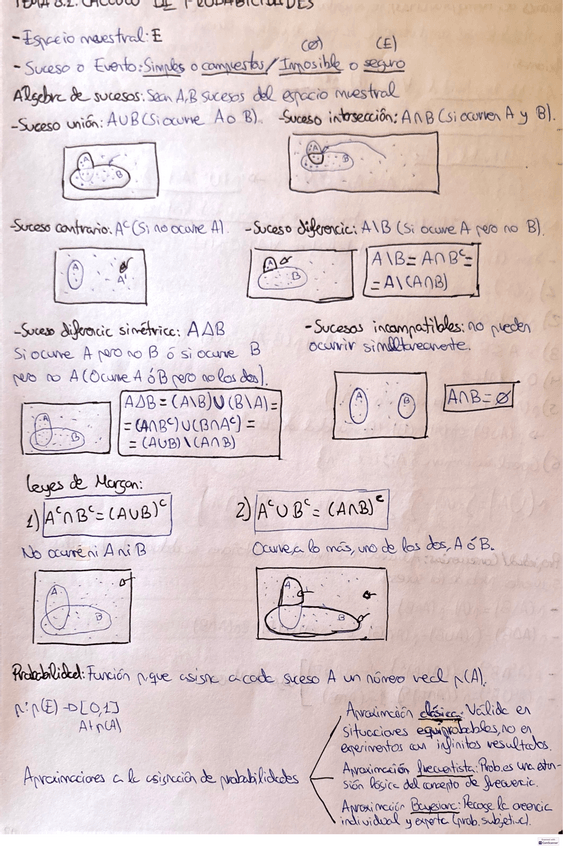 TEMA 8.2. CÁLCULO DE PROBABILIDADES
- Espacio muestral: E
(∅) (E)
- Suceso o Evento: Simples o compuestos / Imposible o seguro
Álgebra de sucesos: Sean A, B sucesos del espacio muestral
- Suceso unión: A∪B (Si ocurre A o B).
- Suceso intersección: A∩B (si ocurren A y B).
A
B
A
B
- Suceso contrario: Aᶜ (Si no ocurre A).
- Suceso diferencia: A\B (Si ocurre A pero no B).
A
Aᶜ
A
B
A\B = A∩Bᶜ =
= A\(A∩B)
- Suceso diferencia simétrica: A∆B
Si ocurre A pero no B ó si ocurre B
pero no A (Ocurre A ó B pero no los dos).
- Sucesos incompatibles: no pueden
ocurrir simultáneamente.
A
B
A∆B = (A\B)∪(B\A) =
= (A∩Bᶜ)∪(B∩Aᶜ) =
= (A∪B)\(A∩B)
A
B
A∩B = ∅
Leyes de Morgan:
1) Aᶜ∩Bᶜ = (A∪B)ᶜ
2) Aᶜ∪Bᶜ = (A∩B)ᶜ
No ocurre ni A ni B
Ocurre, a lo más, uno de los dos, A ó B.
A
B
A
B
Probabilidad: Función p que asigna a cada suceso A un número real p(A).
p: p(E) → [0,1]
A ↦ p(A)
Aproximaciones a la asignación de probabilidades
Aproximación clásica: Válida en
situaciones equiprobables, no en
experimentos con infinitos resultados.
Aproximación frecuentista: Prob. es una exten-
sión lógica del concepto de frecuencia.
Aproximación Bayesiana: Recoge la creencia
individual y experta (prob. subjetiva).